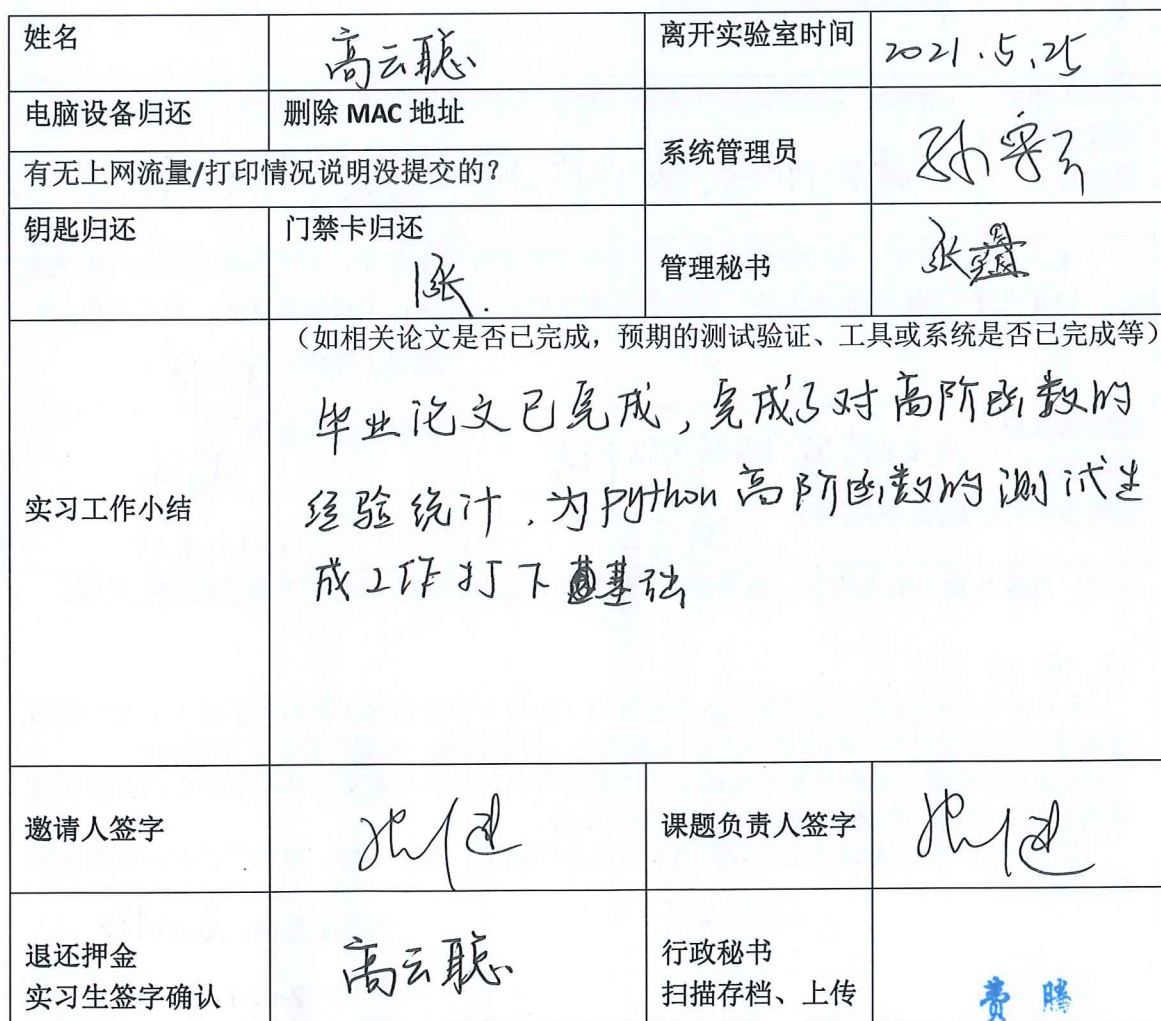 姓名 高云聪 离开实验室时间 2021.5.25
电脑设备归还 删除 MAC 地址
系统管理员
有无上网流量/打印情况说明没提交的？
钥匙归还 门禁卡归还
张
管理秘书
（如相关论文是否已完成，预期的测试验证、工具或系统是否已完成等）
实习工作小结
毕业论文已完成，完成了对高阶函数的
经验统计，为Python高阶函数的测试生
成工作打下基础
邀请人签字 张健 课题负责人签字 张健
退还押金
实习生签字确认
高云聪
行政秘书
扫描存档、上传
费腾